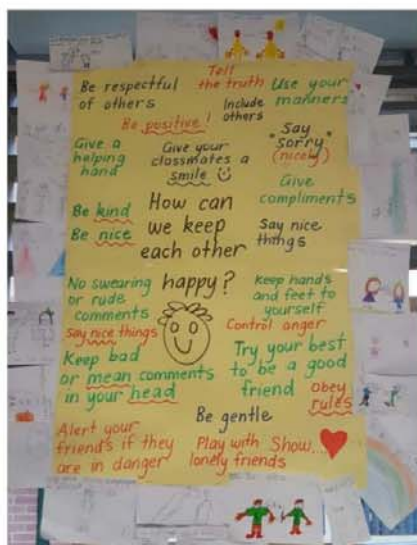 Be respectful
of others
Tell
the truth
Use your
manners
Include
others
Be positive!
"Say
sorry"
(nicely)
Give a
helping
hand
Give your
classmates a
smile
Give
compliments
Be kind
Be nice
How can
we keep
each other
happy?
Say nice
things
No swearing
or rude
comments
Keep hands
and feet to
yourself
Say nice things
Control anger
Keep bad
or mean comments
in your head
Try your best
to be a good
friend
obey
rules
Be gentle
Alert your
friends if they
are in danger
Play with
lonely friends
Show...